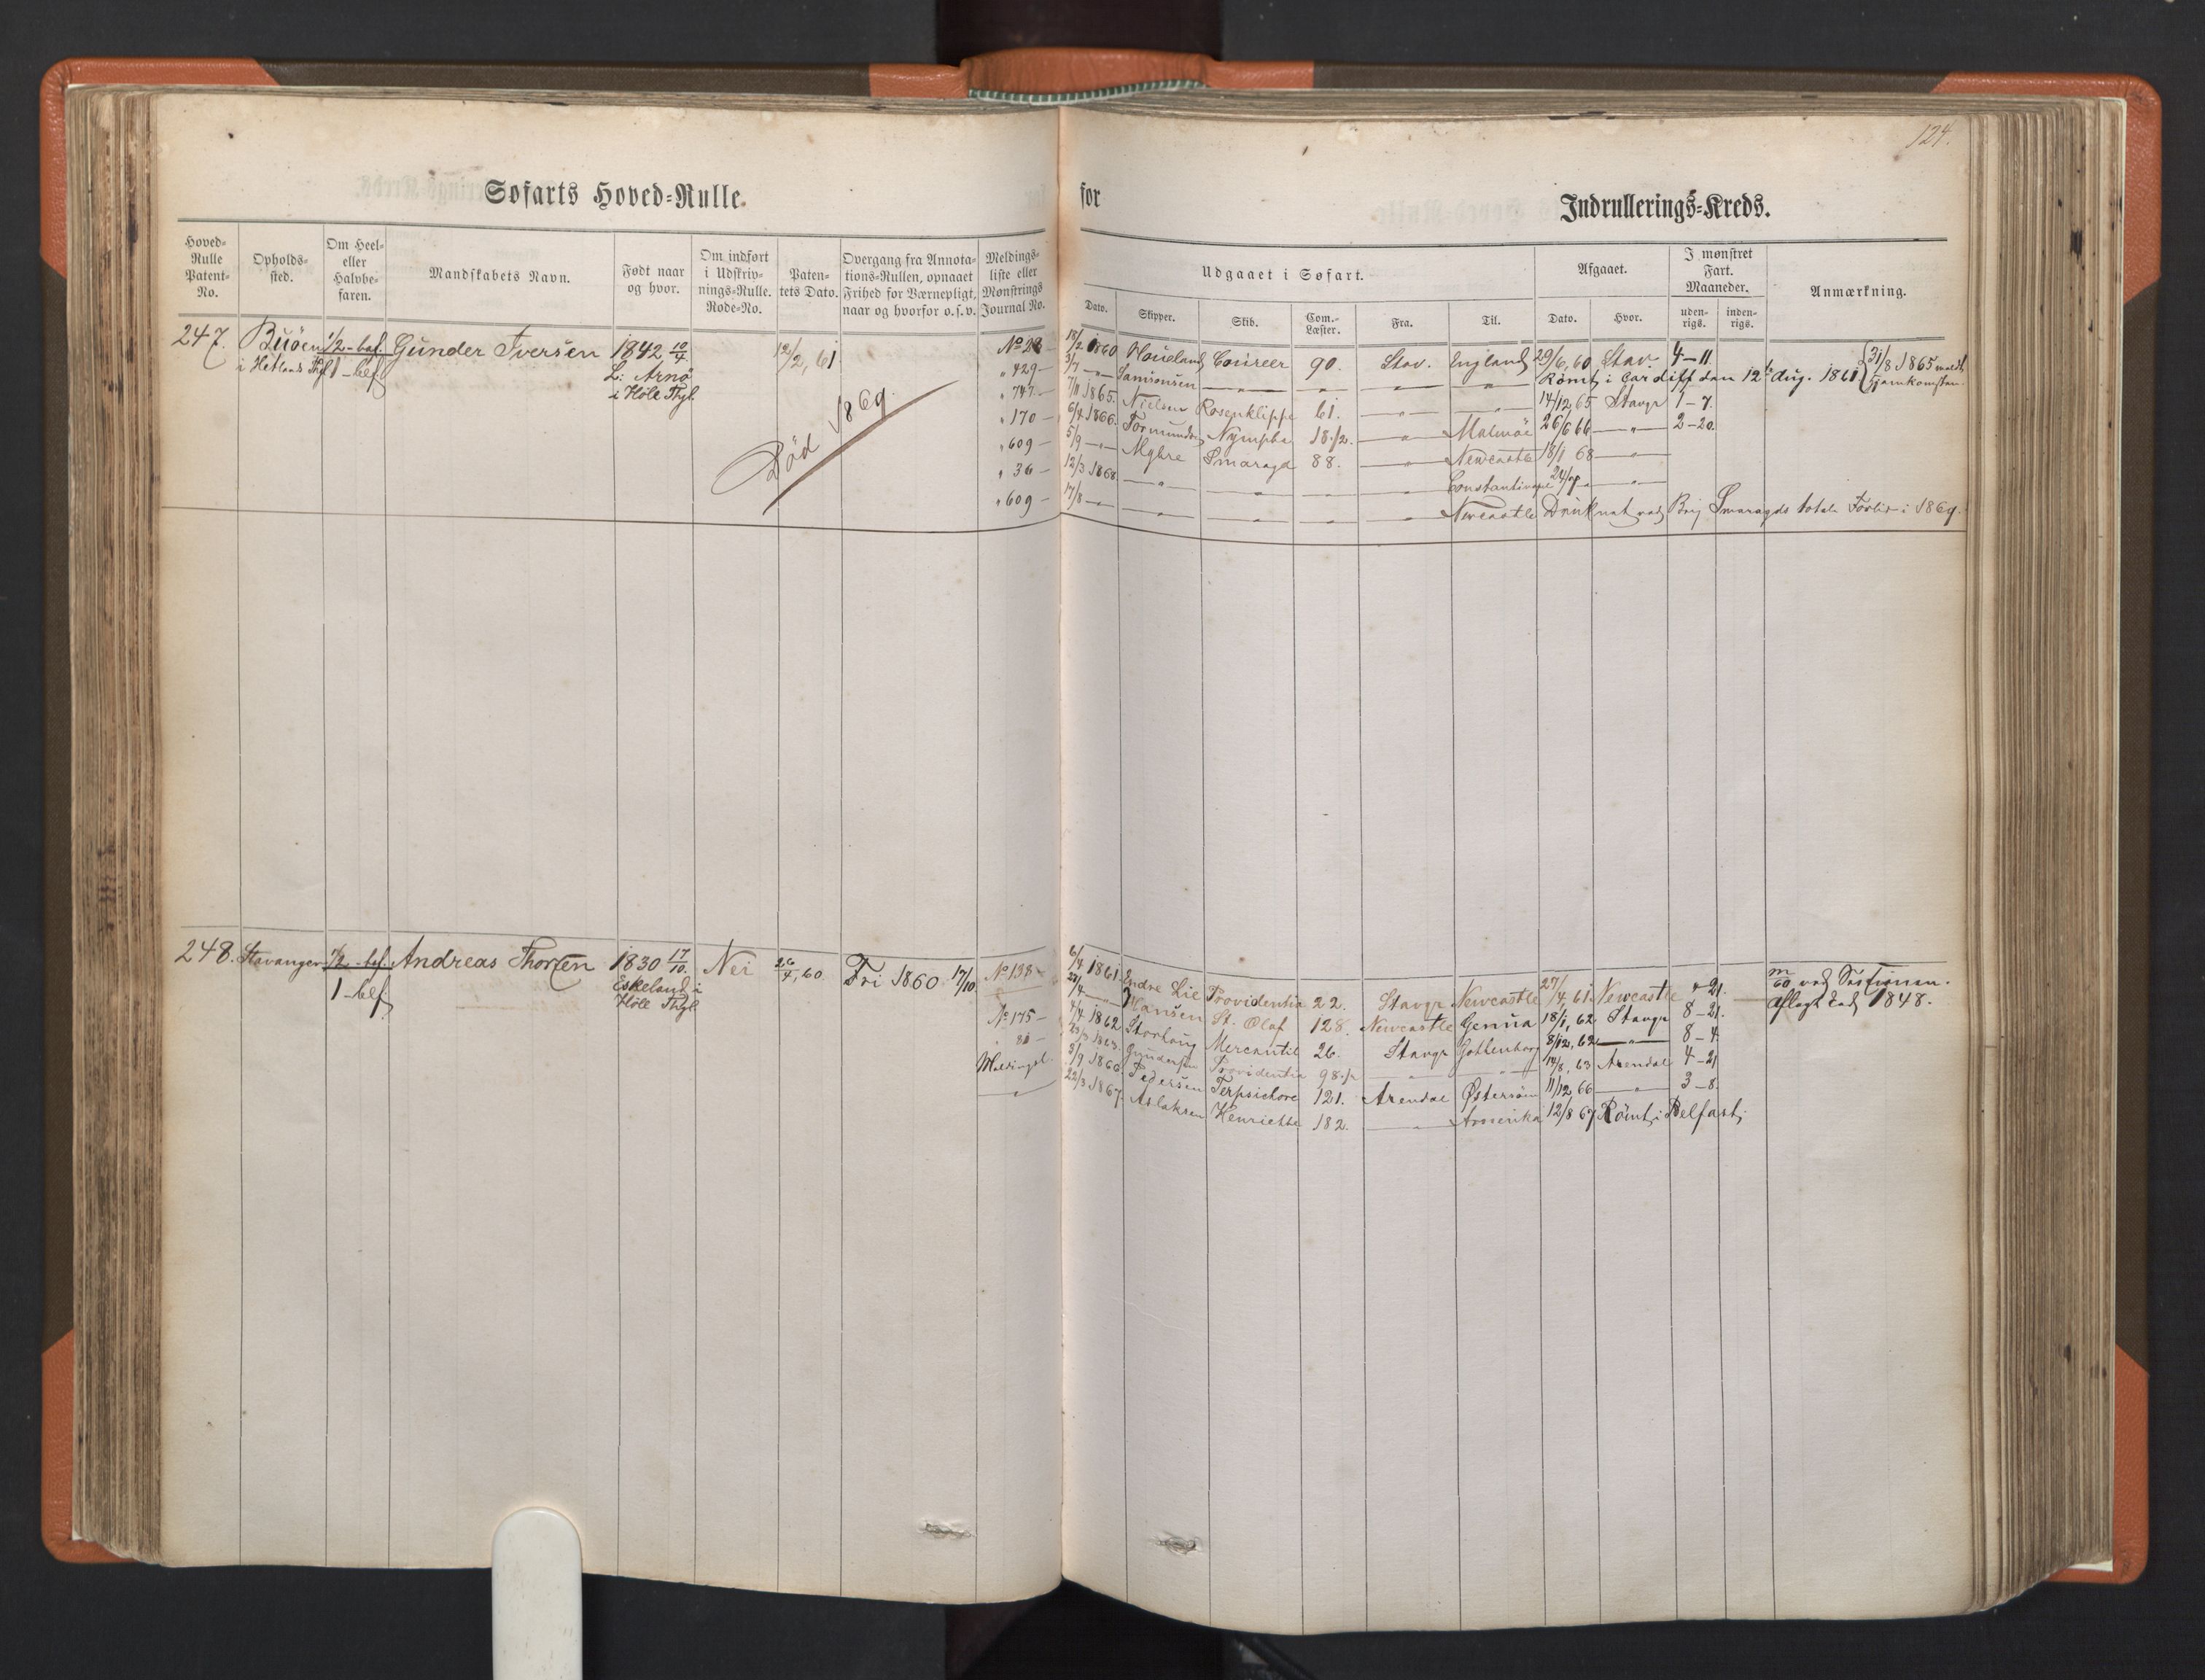 124.
Søfarts Hoved-Rulle.
for
Indrullerings-Kreds.
Hoved-Rulle Patent-No.
Opholds-sted.
Om Heel- eller Halvbe-faren.
Mandskabets Navn.
Født naar og hvor.
Om indført i Udskriv-nings-Rulle. Rode-No.
Paten-tets Dato.
Overgang fra Annota-tions-Rullen, opnaaet Frihed for Værnepligt, naar og hvorfor o.s.v.
Meldings-liste eller Mønstrings Journal No.
Udgaaet i Søfart.
Dato.
Skipper.
Skib.
Com.-Læster.
Fra.
Til.
Afgaaet.
Dato.
Hvor.
I mønstret Fart. Maaneder.
uden-rigs.
inden-rigs.
Anmærkning.
247. Buöen 1/2-bef. Gunder Iversen 1842 10/4
i Hetlands Thgl 1-bef L: Arnö
i Höle Thgl.
12/2, 61
Död 1869.
No 28 18/2 1860 Houeland Coureer 90. Stav. England 29/6, 60 Stav 4-11.
" 429- 3/7 -"- Samsonsen -"- -"- -"- -"- Römt i Cardiff den 12te Aug. 1861. {31/8 1865 meldt Hjemkomsten
" 747- 7/11 1865. Nielsen Rosenklippe 61. -"- -"- 14/12 65 Stavgr 1-7.
" 170- 6/4 1866. Tormundsen Nymphe 18 1/2. -"- Malmöe 26/6 66 -"- 2-20.
" 609- 5/9 -"- Myhre Smaragd 88. -"- Newcastle 18/1 68 -"-
" 36- 12/3 1868 -"- -"- -"- -"- Constantinopel 24/7 -"- -"-
" 609- 17/8 -"- -"- -"- -"- -"- Newcastle Druknet ved Brig Smaragds totale Forlis i 1869.
248. Stavanger 1/2-bef. Andreas Thorsen 1830 17/10. Nei 26/4, 60. Fri 1860 17/10
1-bef Eskeland i
Höle Thgl.
No 138- 6/4 1861 Endre Lie Providentia 22. Stavgr Newcastle 27/4, 61. Newcastle "-21. m/60 ved Sessionen.
27/4 -"- Hansen St. Olaf 128. Newcastle Genua 18/1, 62 Stavgr 8-21. aflagt Eed 1848.
No 175- 4/4 1862 Storhoug Mercantil 26. Stavgr Gothenborg 8/12, 62 -"- 8-4.
" 81- 25/3 1863. Gundersen Providentia 98 1/2 -"- -"- 14/8, 63 Arendal 4-21
Meldingsl. 8/9 1866. Pedersen Terpsichore 121. Arendal Østersöen 11/12 66 -"- 3-8.
-"- 22/3 1867. Aslaksen Henriette 182. -"- Amerika 12/8 67 Römt i Belfast.